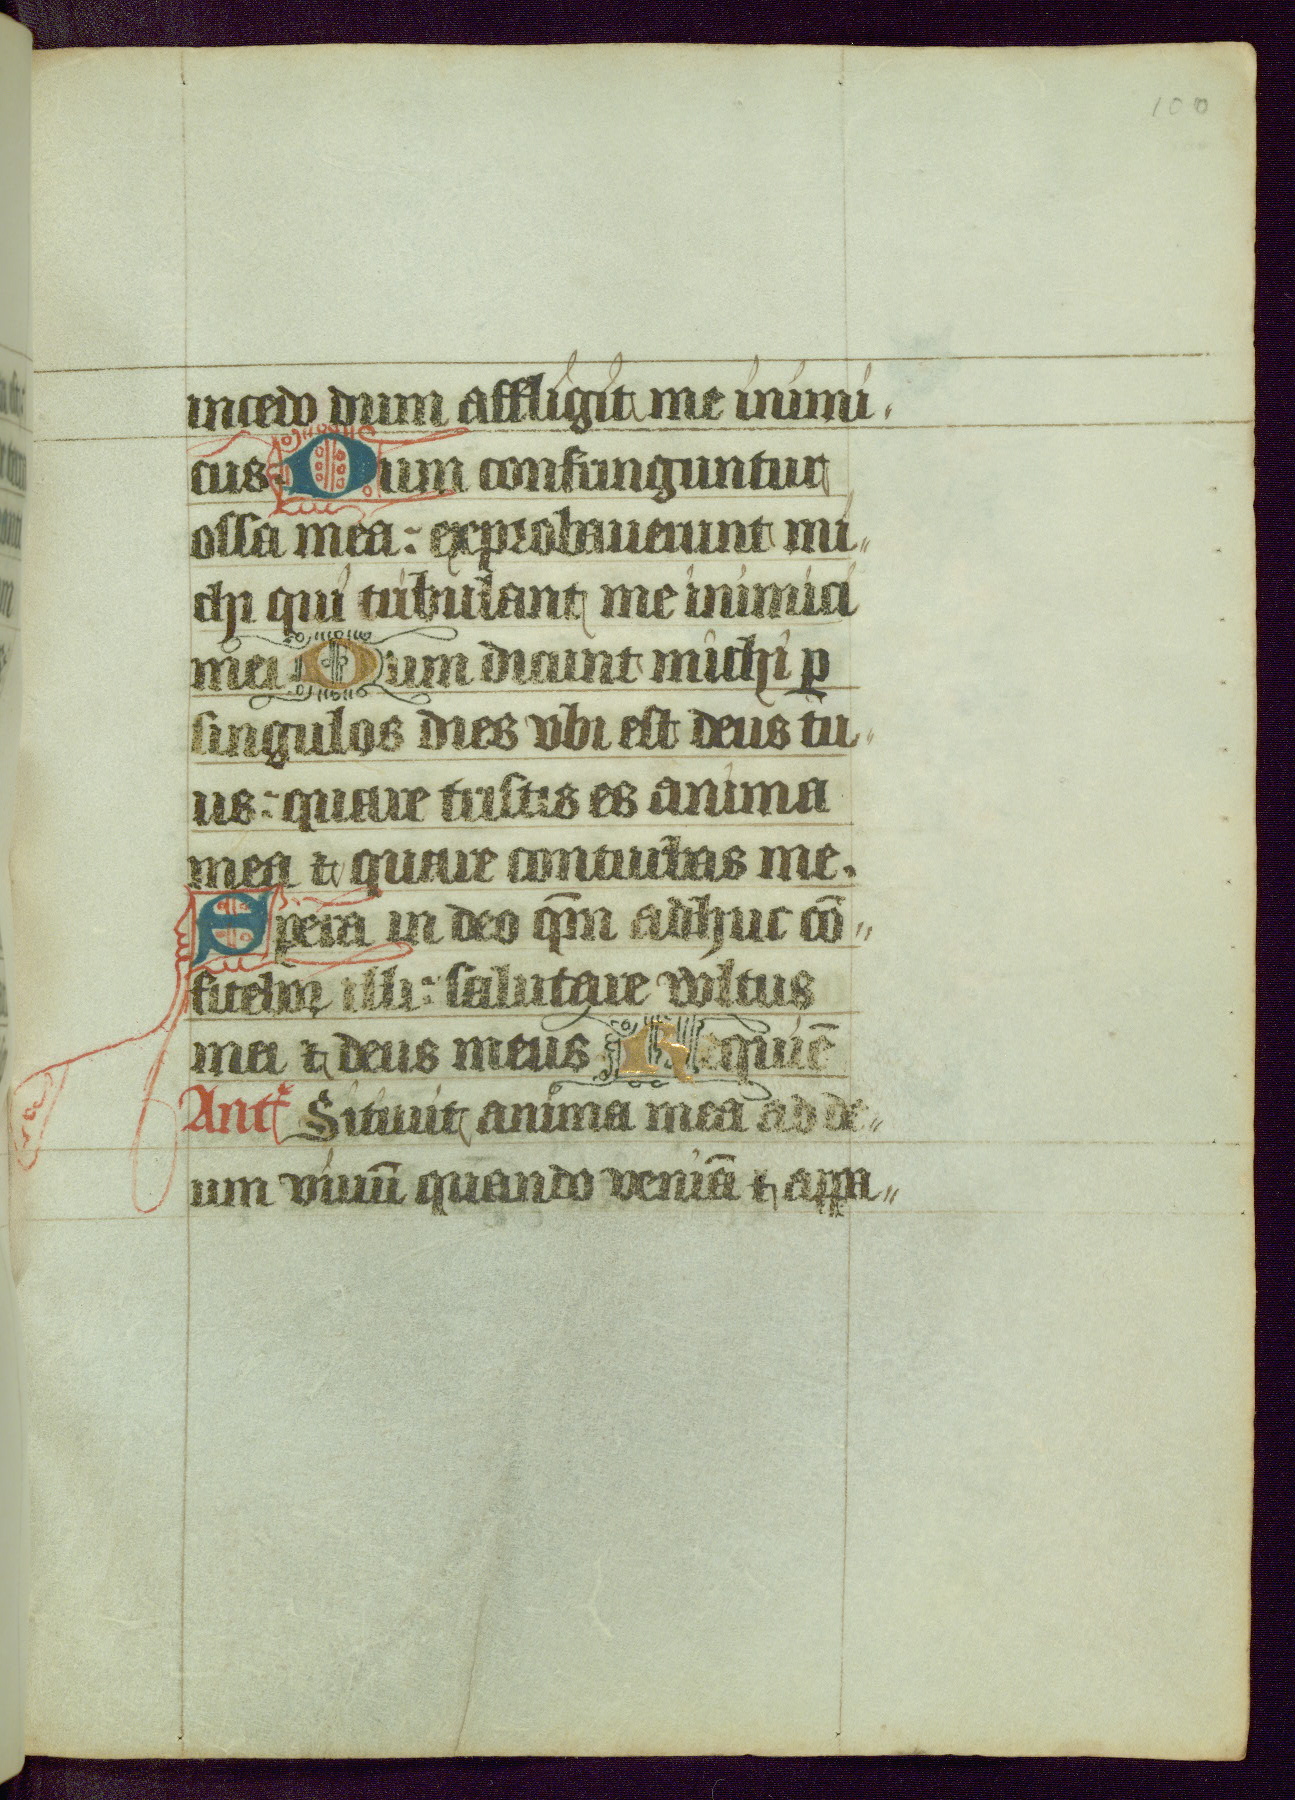 100
incedo dum affligit me inimi
cus Dum confringuntur
ossa mea: exprobauerunt mi
chi qui tribulant me inimici
mei Dum dicunt michi ꝑ
singulos dies vbi est deus tu
us: quare tristis es anima
mea ⁊ quare conturbas me.
Spera in deo qm̄ adhuc cō
fitebor illi: salutare vvltus
mei ⁊ deus meus Requiē
Ant Sitiuit anima mea ad de
um viuū quando veniā ⁊ appa